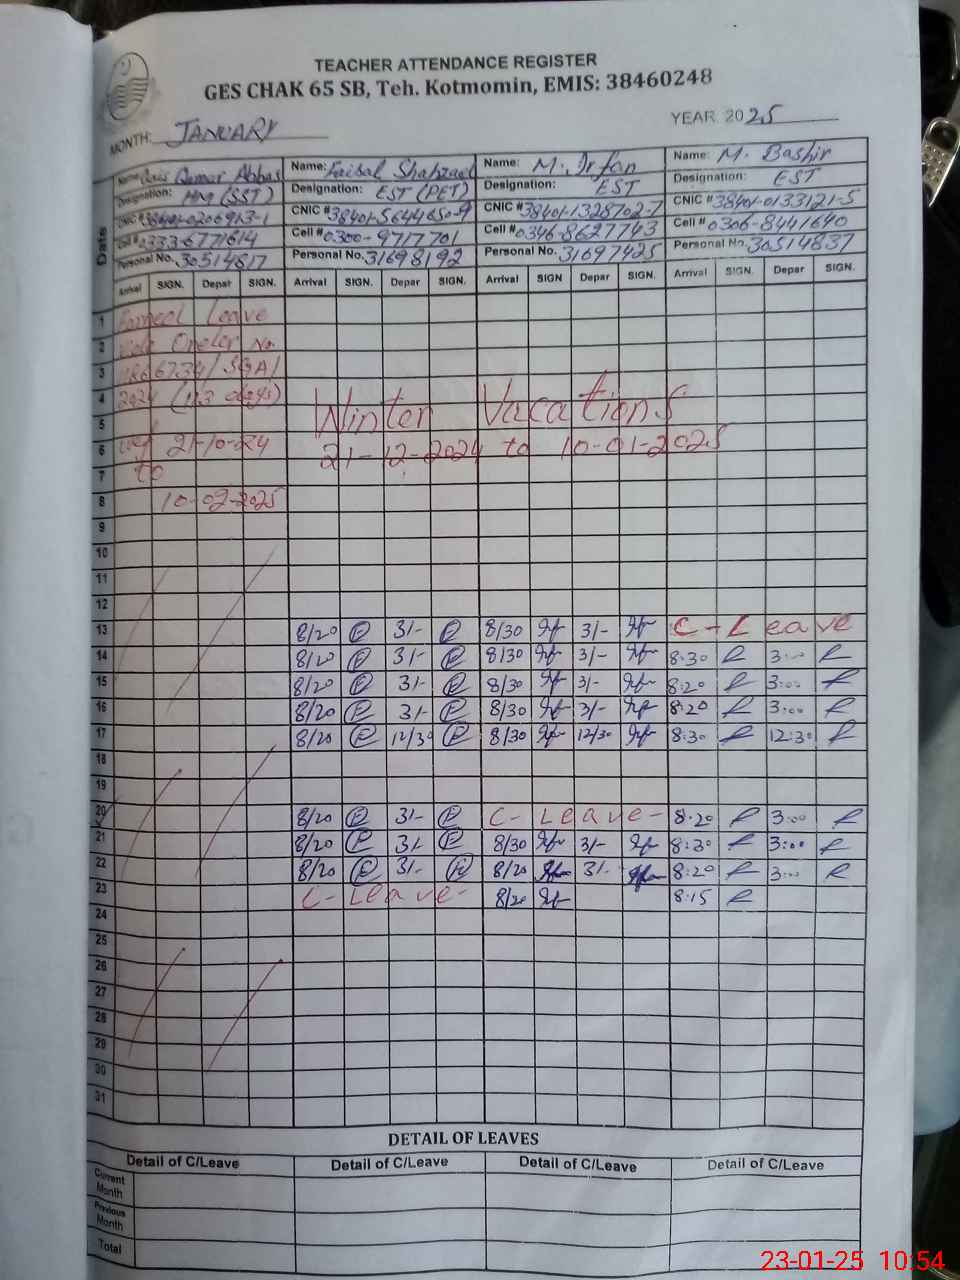 TEACHER ATTENDANCE REGISTER
GES CHAK 65 SB, Teh. Kotmomin, EMIS: 38460248
MONTH: JANUARY YEAR. 2025
Name: Qamar Abbas Name: Faisal Shahzad Name: M. Irfan Name: M. Bashir
Designation: HM (SST) Designation: EST (PET) Designation: EST Designation: EST
CNIC # CNIC # 38401-5644650-9 CNIC # 38401-1328702-7 CNIC # 38401-0133121-5
Cell # 0333-6771614 Cell # 0300-9717701 Cell # 0346-8627743 Cell # 0306-8441640
Personal No. 30514817 Personal No. 31698192 Personal No. 31697425 Personal No. 30514837
Date Arrival SIGN. Depar SIGN. Arrival SIGN. Depar SIGN. Arrival SIGN Depar SIGN. Arrival SIGN. Depar SIGN.
1 Earned Leave
2 Vide Order No.
3 /SGA/
4 2024 (113 days) Winter Vacations
5
6 wef 21-10-24 21-12-2024 to 10-01-2025
7 to
8 10-02-2025
9
10
11
12
13 8/20 3/- 8/30 3/- C-Leave
14 8/20 3/- 8/30 3/- 8:30 3:00
15 8/20 3/- 8/30 3/- 8:20 3:00
16 8/20 3/- 8/30 3/- 8:20 3:00
17 8/20 12/30 8/30 12/30 8:30 12:30
18
19
20 8/20 3/- C-Leave- 8:20 3:00
21 8/20 3/- 8/30 3/- 8:30 3:00
22 8/20 3/- 8/20 3/- 8:20 3:00
23 C-Leave- 8/20 8:15
24
25
26
27
28
29
30
31
DETAIL OF LEAVES
Detail of C/Leave Detail of C/Leave Detail of C/Leave Detail of C/Leave
Current Month
Previous Month
Total
23-01-25 10:54